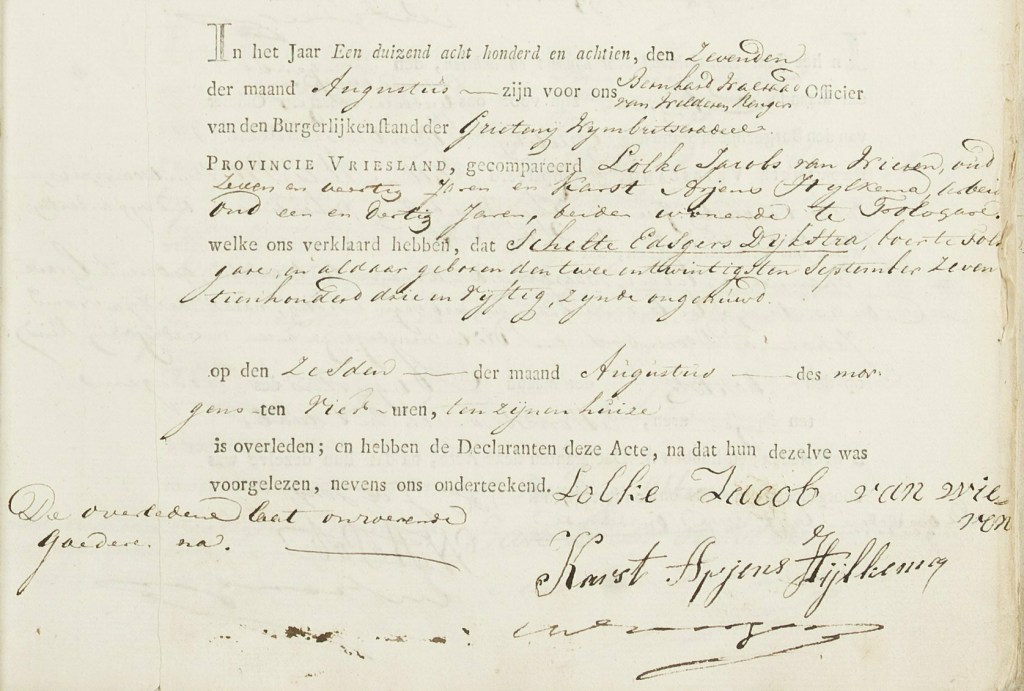 In het Jaar Een duizend acht honderd en achtien, den Zevenden
der maand Augustus zijn voor ons Bernhard Walraad
van Welderen Rengers Officier
van den Burgerlijken stand der Grietenij Wymbritseradeel
PROVINCIE VRIESLAND, gecompareerd Lolke Jacobs van Wieren, oud
Zeven en veertig Jaren en Karst Arjens Hylkema, arbei
oud een en dertig Jaren, beiden wonende te Folsgare
welke ons verklaard hebben, dat Schelte Edsgers Dijkstra, boer te Fols
gare, en aldaar geboren den twee en twintigsten September Zeven
tienhonderd drie en Vyftig, zynde ongehuwd.
op den Zesden der maand Augustus des mor-
gens ten vier uren, ten zijnen huize
is overleden; en hebben de Declaranten deze Acte, na dat hun dezelve was
voorgelezen, nevens ons onderteekend.
Lolke Jacob van wie
ren
De overledene laat onroerende
goederen na.
Karst Arjens Hijlkema